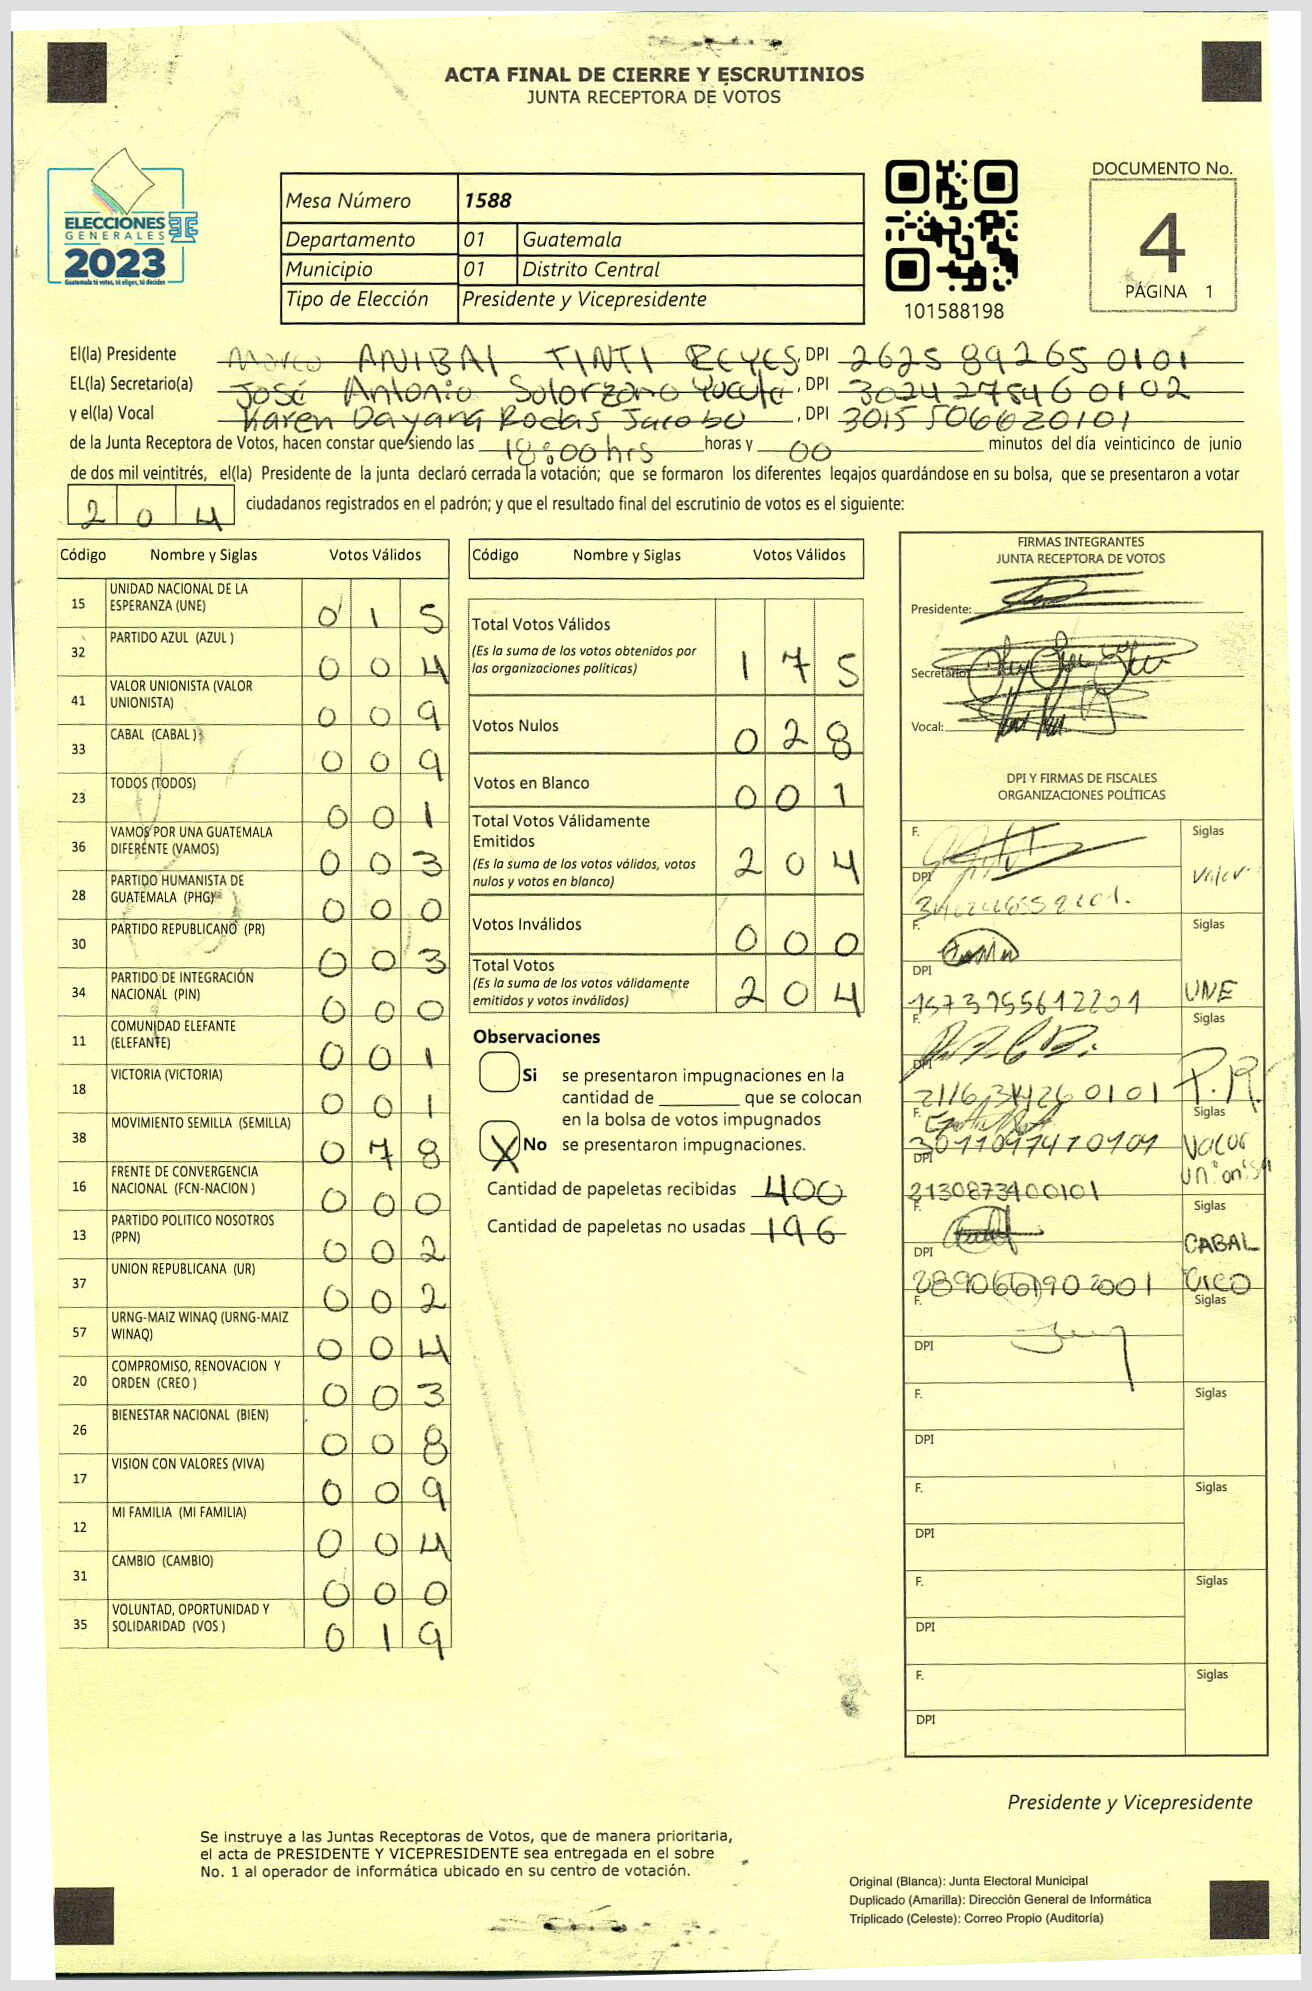 ACTA FINAL DE CIERRE Y ESCRUTINIOS
JUNTA RECEPTORA DE VOTOS
ELECCIONES
GENERALES
2023
Guatemala tú votas, tú eliges, tú decides
Mesa Número 1588
Departamento 01 Guatemala
Municipio 01 Distrito Central
Tipo de Elección Presidente y Vicepresidente
101588198
DOCUMENTO No.
4
PÁGINA 1
El(la) Presidente Marco ANIBAL TINTI REYES, DPI 2625 89265 0101
EL(la) Secretario(a) José Antonio Solorzano Yucute, DPI 3024 27546 0102
y el(la) Vocal Karen Dayana Rodas Jacobo, DPI 3015 50662 0101
de la Junta Receptora de Votos, hacen constar que siendo las 18:00 hrs horas y 00 minutos del día veinticinco de junio
de dos mil veintitrés, el(la) Presidente de la junta declaró cerrada la votación; que se formaron los diferentes legajos guardándose en su bolsa, que se presentaron a votar
204 ciudadanos registrados en el padrón; y que el resultado final del escrutinio de votos es el siguiente:
Código Nombre y Siglas Votos Válidos
15 UNIDAD NACIONAL DE LA ESPERANZA (UNE) 015
32 PARTIDO AZUL (AZUL ) 004
41 VALOR UNIONISTA (VALOR UNIONISTA) 009
33 CABAL (CABAL ) 009
23 TODOS (TODOS) 001
36 VAMOS POR UNA GUATEMALA DIFERENTE (VAMOS) 003
28 PARTIDO HUMANISTA DE GUATEMALA (PHG) 000
30 PARTIDO REPUBLICANO (PR) 003
34 PARTIDO DE INTEGRACIÓN NACIONAL (PIN) 000
11 COMUNIDAD ELEFANTE (ELEFANTE) 001
18 VICTORIA (VICTORIA) 001
38 MOVIMIENTO SEMILLA (SEMILLA) 078
16 FRENTE DE CONVERGENCIA NACIONAL (FCN-NACION ) 000
13 PARTIDO POLITICO NOSOTROS (PPN) 002
37 UNION REPUBLICANA (UR) 002
57 URNG-MAIZ WINAQ (URNG-MAIZ WINAQ) 004
20 COMPROMISO, RENOVACION Y ORDEN (CREO ) 003
26 BIENESTAR NACIONAL (BIEN) 008
17 VISION CON VALORES (VIVA) 009
12 MI FAMILIA (MI FAMILIA) 004
31 CAMBIO (CAMBIO) 000
35 VOLUNTAD, OPORTUNIDAD Y SOLIDARIDAD (VOS ) 019
Código Nombre y Siglas Votos Válidos
Total Votos Válidos 175
(Es la suma de los votos obtenidos por
las organizaciones politicas)
Votos Nulos 028
Votos en Blanco 001
Total Votos Válidamente
Emitidos 204
(Es la suma de los votos válidos, votos
nulos y votos en blanco)
Votos Inválidos 000
Total Votos 204
(Es la suma de los votos válidamente
emitidos y votos inválidos)
Observaciones
Si se presentaron impugnaciones en la
cantidad de ________ que se colocan
en la bolsa de votos impugnados
X No se presentaron impugnaciones.
Cantidad de papeletas recibidas 400
Cantidad de papeletas no usadas 196
FIRMAS INTEGRANTES
JUNTA RECEPTORA DE VOTOS
Presidente:
Secretario:
Vocal:
DPI Y FIRMAS DE FISCALES
ORGANIZACIONES POLÍTICAS
F. Siglas
DPI Valor
F. Siglas
DPI
1573 75561 2201 UNE
F. Siglas
DPI
P.R.
F. Siglas
DPI Valor
unionista
2130873400101
F. Siglas
DPI CABAL
CICO
F. Siglas
DPI
F. Siglas
DPI
F. Siglas
DPI
F. Siglas
DPI
F. Siglas
DPI
Presidente y Vicepresidente
Se instruye a las Juntas Receptoras de Votos, que de manera prioritaria,
el acta de PRESIDENTE Y VICEPRESIDENTE sea entregada en el sobre
No. 1 al operador de informática ubicado en su centro de votación.
Original (Blanca): Junta Electoral Municipal
Duplicado (Amarilla): Dirección General de Informática
Triplicado (Celeste): Correo Propio (Auditoría)